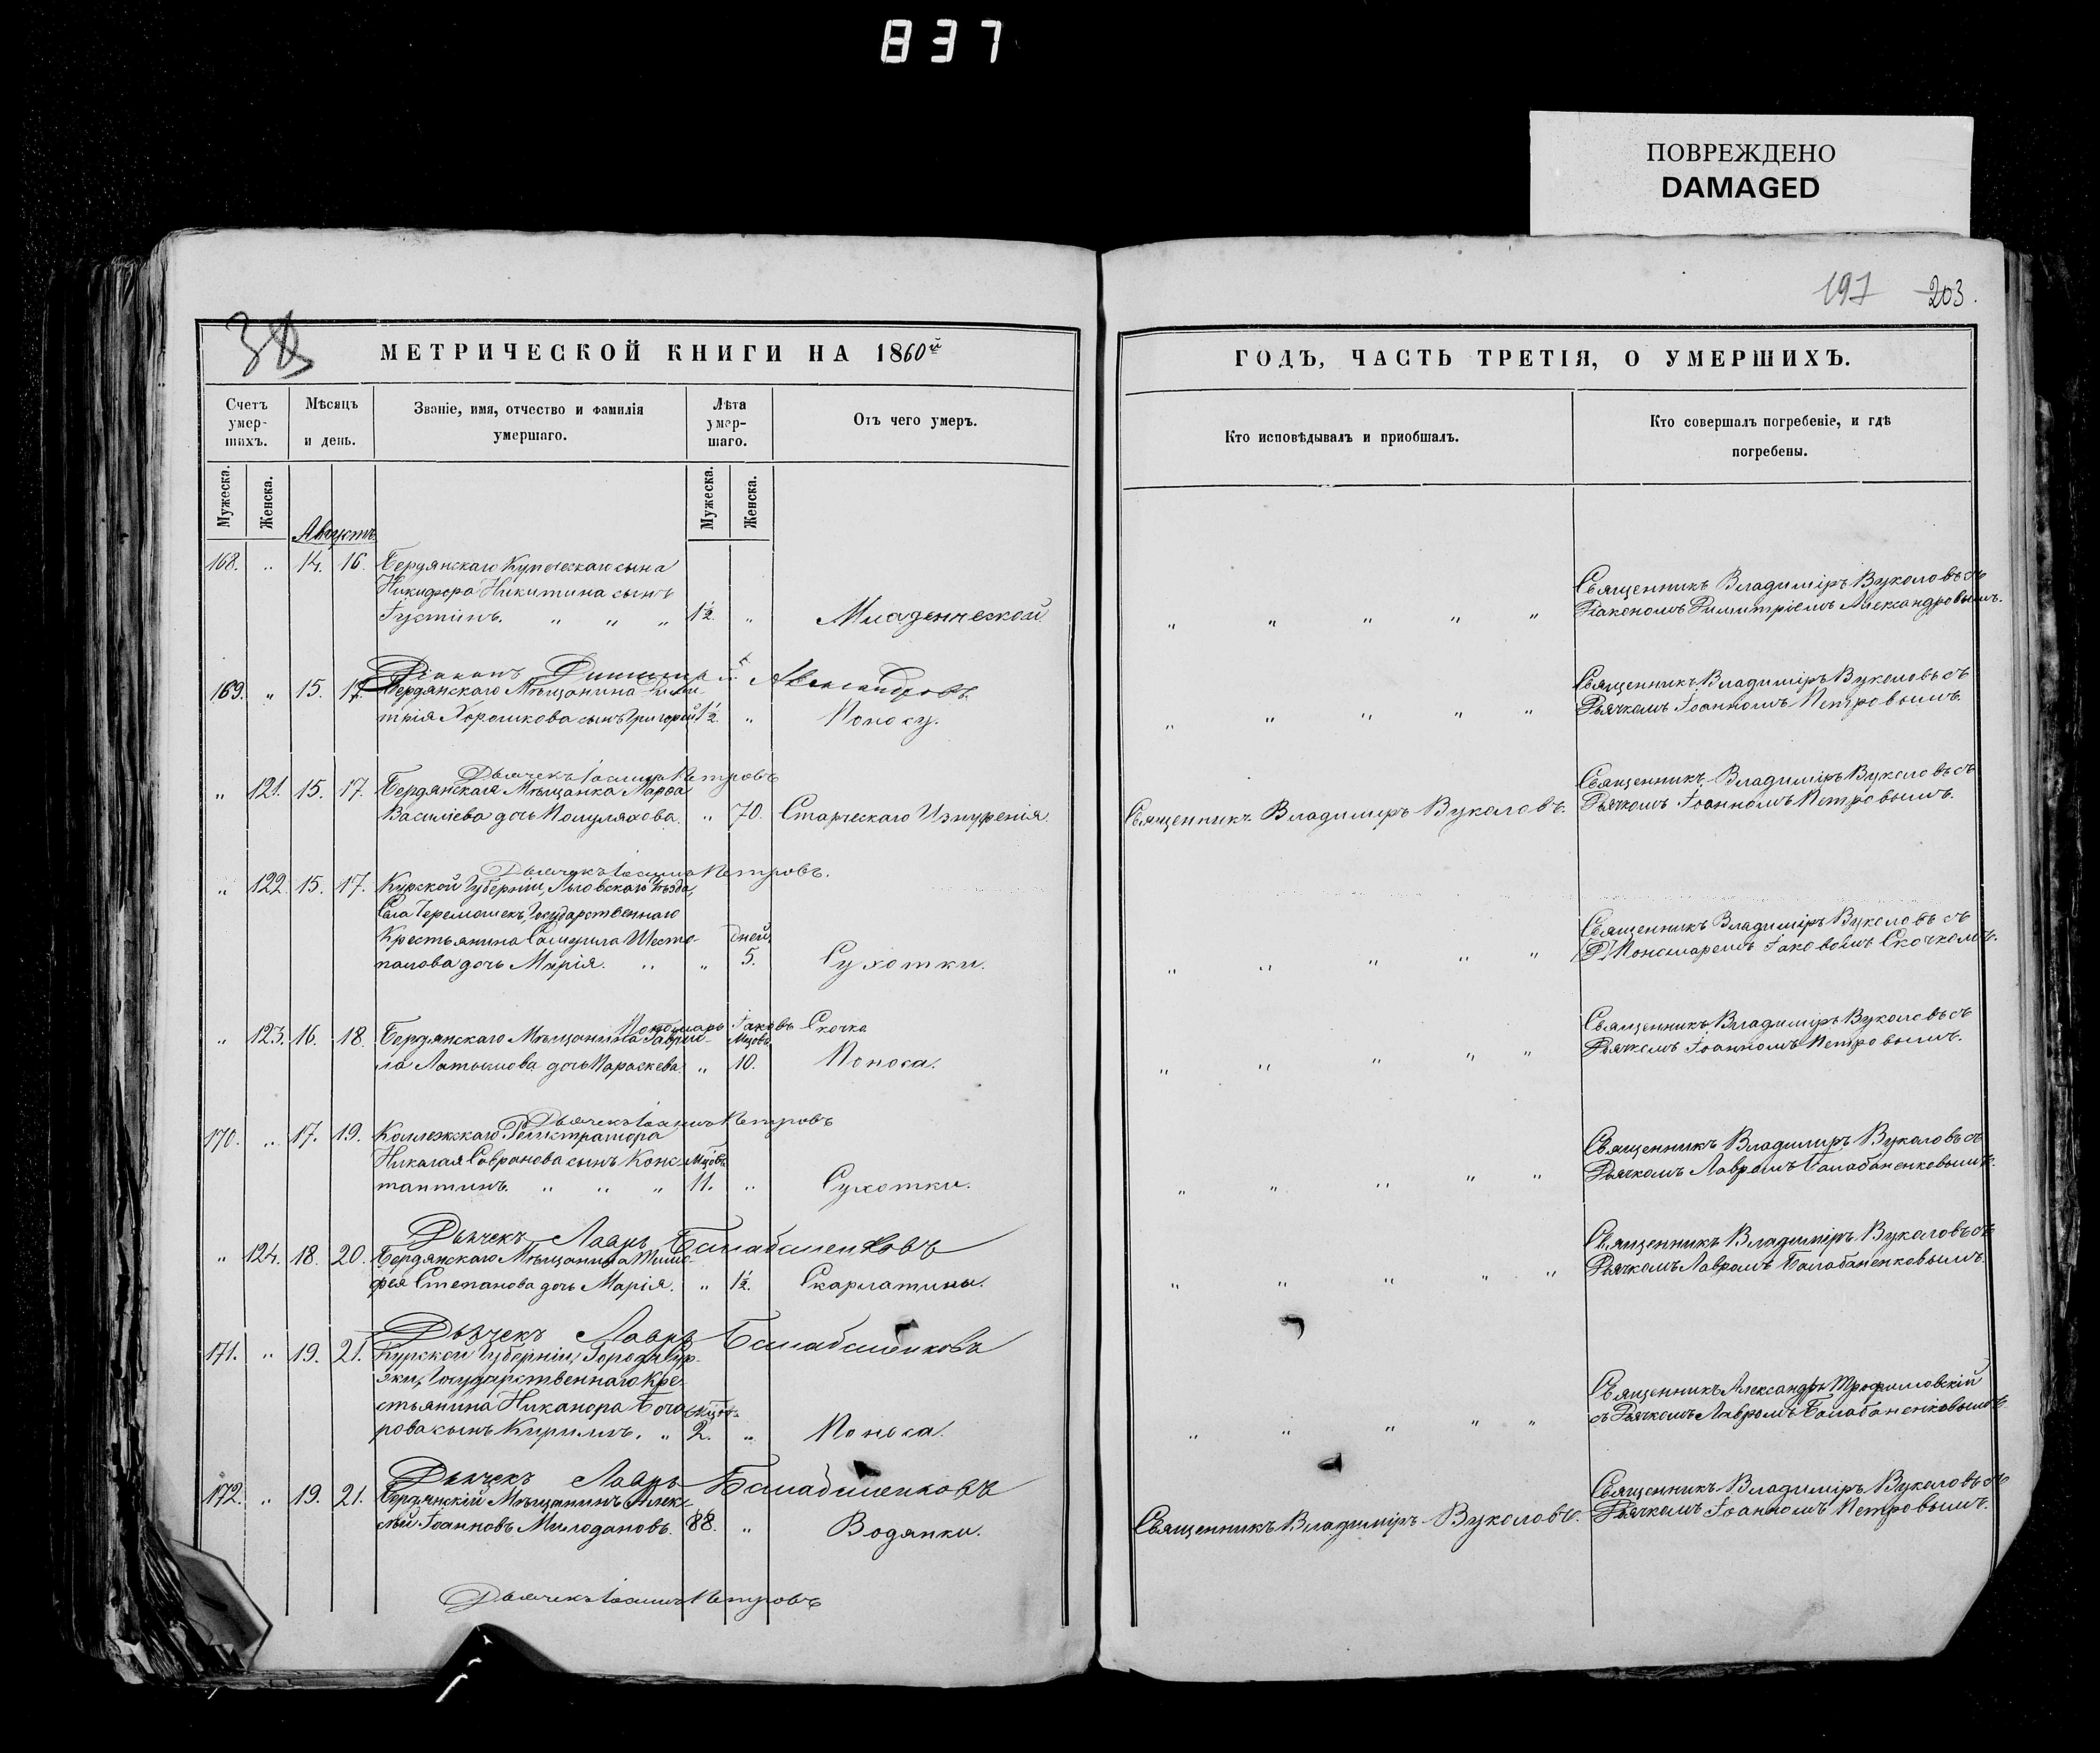 837
ПОВРЕЖДЕНО
DAMAGED
197 203.
МЕТРИЧЕСКОЙ КНИГИ НА 1860й
Счетъ умер-шихъ.
Мѣсяцъ и день.
Званіе, имя, отчество и фамилія умершаго.
Лѣта умер-шаго.
Отъ чего умеръ.
Мужеска. Женска.
Мужеска. Женска.
Августъ
168. „ 14. 16. Бердянскаго Купеческаго сына
Никифора Никитина сынъ
Іустинъ. „ „ „ 1½. „ Младенческой
Діаконъ Димитрій Александровъ
169. „ 15. 17. Бердянскаго Мѣщанина Дими-
трія Хорошкова сынъ Григорій 1½. „ Поносу.
Дьячекъ Іоаннъ Петровъ
„ 121. 15. 17. Бердянская Мѣщанка Марфа
Василіева дочь Полуляхова. „ 70. Старческаго Изнуренія.
Дьячекъ Іоаннъ Петровъ.
„ 122. 15. 17. Курской Губерніи, Льговскаго Уѣзда,
Села Черемошекъ, Государственнаго
Крестьянина Самуила Шесто- дней
палова дочь Марія. „ „ 5. Сухотки.
Пономарь Іаковъ Скочко
„ 123. 16. 18. Бердянскаго Мѣщанина Гаврии- Мцовъ
ла Латышова дочь Параскева „ 10. Поноса.
Дьячекъ Іоаннъ Петровъ
170. „ 17. 19. Коллежскаго Регистратора
Николая Савранова сынъ Конс- Мцовъ
тантинъ. „ „ „ 11. „ Сухотки.
Дьячекъ Лавръ Балабаненковъ
„ 124. 18. 20. Бердянскаго Мѣщанина Тимо-
фея Степанова дочь Марія. „ 1½. Скарлатины.
Дьячекъ Лавръ Балабаненковъ
171. „ 19. 21. Курской Губерніи, Города Сур-
жи, Государственнаго Кре-
стьянина Никанора Бочо- Мцов.
рова сынъ Кириллъ. „ 2. „ Поноса.
Дьячекъ Лавръ Балабаненковъ
172. „ 19. 21. Бердянскій Мѣщанинъ Алек-
сѣй Іоанновъ Милодановъ. 88. „ Водянки.
Дьячекъ Іоаннъ Петровъ
ГОДЪ, ЧАСТЬ ТРЕТІЯ, О УМЕРШИХЪ.
Кто исповѣдывалъ и приобшалъ.
Кто совершалъ погребеніе, и гдѣ
погребены.
Священникъ Владиміръ Вуколовъ съ
„ „ „ „ „ Діакономъ Димитріемъ Александровымъ.
Священникъ Владиміръ Вуколовъ съ
„ „ „ „ „ Дьячкомъ Іоанномъ Петровымъ.
Священникъ Владиміръ Вуколовъ съ
Священникъ Владиміръ Вуколовъ. Дьячкомъ Іоанномъ Петровымъ.
Священникъ Владиміръ Вуколовъ съ
„ „ „ „ „ Пономаремъ Іаковомъ Скочкомъ.
Священникъ Владиміръ Вуколовъ съ
„ „ „ „ „ Дьячкомъ Іоанномъ Петровымъ.
Священникъ Владиміръ Вуколовъ съ
„ „ „ „ „ Дьячкомъ Лавромъ Балабаненковымъ.
Священникъ Владиміръ Вуколовъ съ
„ „ „ „ „ Дьячкомъ Лавромъ Балабаненковымъ.
Священникъ Александръ Трофимовскій
„ „ „ „ „ съ Дьячкомъ Лавромъ Балабаненковымъ.
Священникъ Владиміръ Вуколовъ съ
Священникъ Владиміръ Вуколовъ. Дьячкомъ Іоанномъ Петровымъ.